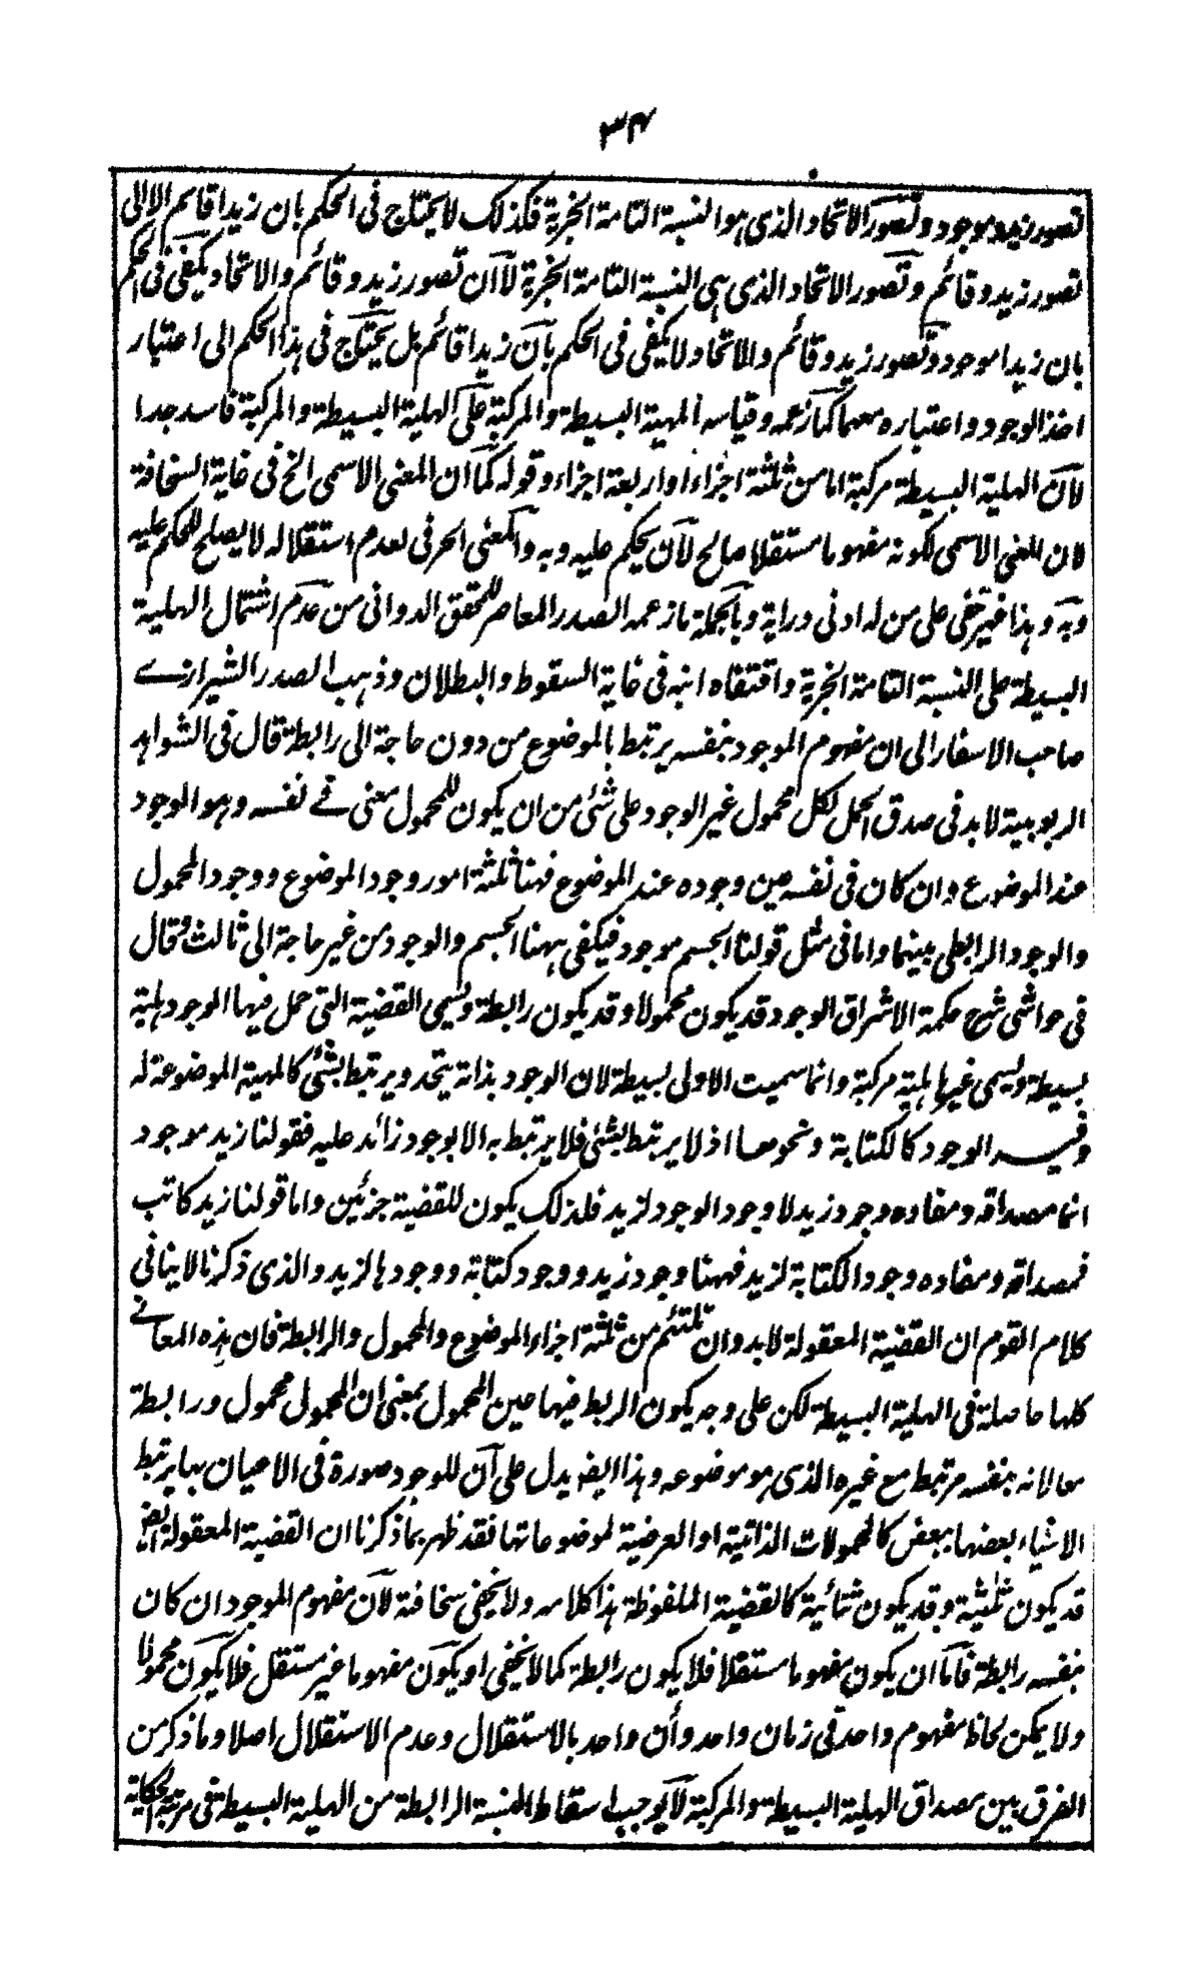 ٣٤
تصور زيد وموجود وتصور الاتحاد الذى هو النسبة التامة الخبرية فكذلك لا يحتاج فى الحكم بان زيدا قايم الا الى
تصور زيد وقائم وتصور الاتحاد الذى هى النسبة التامة الخبرية لا ان تصور زيد وقائم والاتحاد يكفى فى الحكم
بان زيدا موجود وتصور زيد وقائم والاتحاد لا يكفى فى الحكم بان زيدا قائم بل يحتاج فى هذا الحكم الى اعتبار
اخذ الوجود واعتباره معهما كما زعمه وقياسه المهية البسيطة والمركبة على الهلية البسيطة والمركبة فاسد جدا
لان الهلية البسيطة مركبة اما من ثلثة اجزاء او اربعة اجزاء وقوله كما ان المعنى الاسمى الخ فى غاية السخافة
لان المعنى الاسمى لكونه مفهوما مستقلا صالح لان يحكم عليه وبه والمعنى الحرفى لعدم استقلاله لا يصلح للحكم عليه
وبه وهذا غير خفى على من له ادنى دراية وبالجملة ما زعمه الصدر المعاصر للمحقق الدوانى من عدم اشتمال الهلية
البسيطة على النسبة التامة الخبرية واقتفاه ابنه فى غاية السقوط والبطلان وذهب الصدر الشيرازے
صاحب الاسفار الى ان مفهوم الموجود بنفسه يرتبط بالموضوع من دون حاجة الى رابطة قال فى الشواهد
الربوبية لا بد فى صدق الحمل لكل محمول غير الوجود على شئ من ان يكون للمحمول معنى فے نفسه وهو الوجود
عند الموضوع وان كان فى نفسه عين وجوده عند الموضوع فهنا ثلثة امور وجود الموضوع ووجود المحمول
والوجود الرابطى بينهما واما فى مثل قولنا الجسم موجود فيكفى ههنا الجسم والوجود من غير حاجة الى ثالث وقال
فى حواشى شرح حكمة الاشراق الوجود قد يكون محمولا وقد يكون رابطة ويسمى القضية التى حمل فيها الوجود هلية
بسيطة ويسمى غيرها هلية مركبة وانما سميت الاولى بسيطة لان الوجود بذاته يتحد ويرتبط بشئ كالمهية الموضوعة له
وغيـر الوجود كالكتابة ونحوها اذ لا يرتبط بشئ فلا يرتبط به الا بوجود زائد عليه فقولنا زيد موجود
انما مصداقه ومفاده وجود زيد لا وجود الوجود لزيد فلذلك يكون للقضية جزئين واما قولنا زيد كاتب
فمصداقه ومفاده وجود الكتابة لزيد فههنا وجود زيد ووجود كتابة ووجودها لزيد والذى ذكرنا لا ينافى
كلام القوم ان القضية المعقولة لا بد وان تلتئم من ثلثة اجزاء الموضوع والمحمول والرابطة فان هذه المعانے
كلها حاصلة فى الهلية البسيطة لكن على وجه يكون الربط فيها عين المحمول بمعنى ان المحمول محمول ورابطة
معا لانه بنفسه مرتبط مع غيره الذى هو موضوعه وهذا ايضا يدل على ان للوجود صورة فى الاعيان بها يرتبط
الاشياء بعضها ببعض كالمحمولات الذاتية او العرضية لموضوعاتها فقد ظهر بما ذكرنا ان القضية المعقولة ايضا
قد يكون ثلثية وقد يكون ثنائية كالقضية الملفوظة هذا كلامه ولا يخفى سخافته لان مفهوم الموجود ان كان
بنفسه رابطة فاما ان يكون مفهوما مستقلا فلا يكون رابطة كما لا يخفى او يكون مفهوما غير مستقل فلا يكون محمولا
ولا يمكن لحاظ مفهوم واحد فى زمان واحد وأن واحد بالاستقلال وعدم الاستقلال اصلا وما ذكر من
الفرق بين مصداق الهلية البسيطة والمركبة لا يوجب اسقاط النسبة الرابطة من الهلية البسيطة فى مرتبة الحكاية